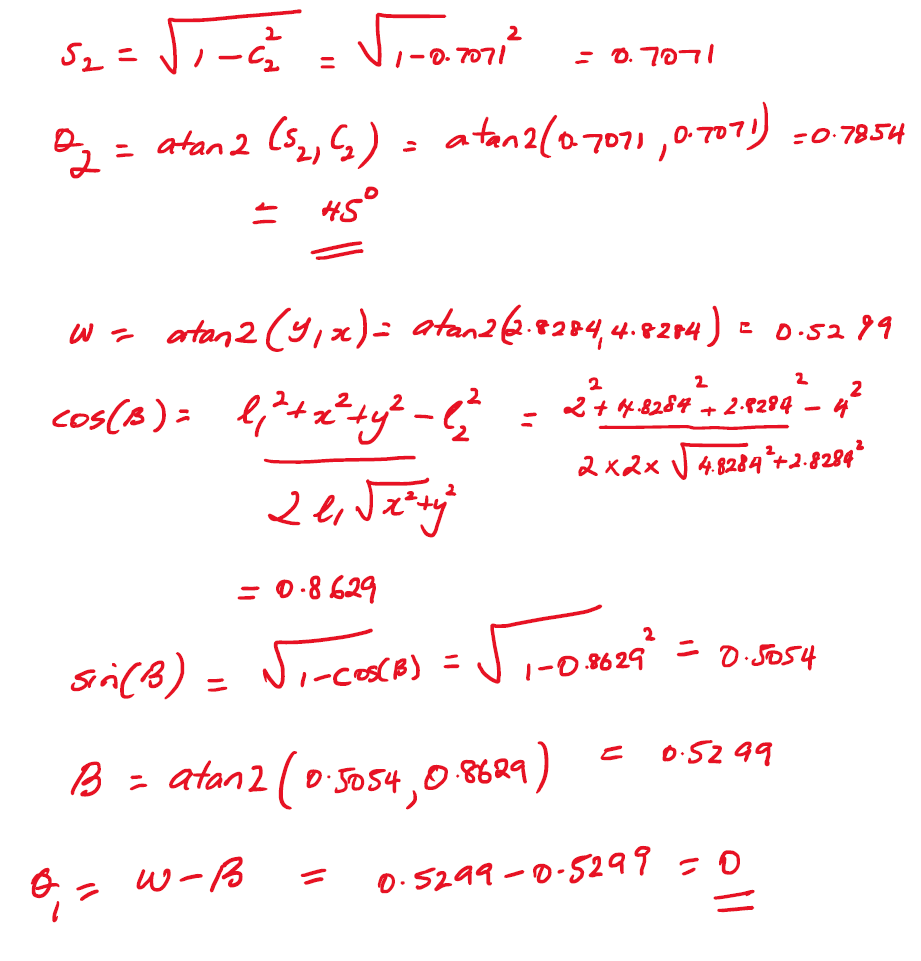 S₂ = √(1 - C₂²) = √(1 - 0.7071²) = 0.7071
θ₂ = atan2 (S₂, C₂) = atan2(0.7071, 0.7071) = 0.7854
= 45°
w = atan2(y, x) = atan2(2.8284, 4.8284) = 0.5299
cos(B) = (l₁² + x² + y² - l₂²) / (2 l₁ √(x² + y²)) = (2² + 4.8284² + 2.8284² - 4²) / (2 × 2 × √(4.8284² + 2.8284²))
= 0.8629
sin(B) = √(1 - cos(B)) = √(1 - 0.8629²) = 0.5054
B = atan2(0.5054, 0.8629) = 0.5299
θ₁ = w - B = 0.5299 - 0.5299 = 0